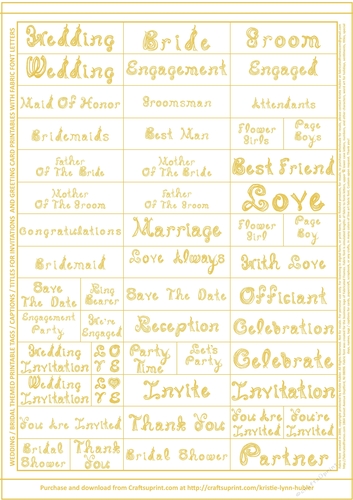 Wedding
Bride
Groom
Wedding
Engagement
Engaged
Maid Of Honor
Groomsman
Attendants
Bridemaids
Best Man
Flower
Girls
Page
Boys
Father
Of The Bride
Mother
Of The Bride
Best Friend
Mother
Of The Groom
Father
Of The Groom
Love
Congratulations
Marriage
Flower
Girl
Page
Boy
Bridemaid
Love Always
With Love
Save
The Date
Ring
Bearer
Save The Date
Officiant
Engagement
Party
We're
Engaged
Reception
Celebration
Wedding
Invitation
LO
VE
Party
Time
Let's
Party
Celebrate
Wedding
Invitation
L♥
VE
Invite
Invitation
You Are Invited
Thank You
You Are
Invited
You're
Invited
Bridal
Shower
Thank
You
Bridal Shower
Partner
WEDDING / BRIDAL THEMED PRINTABLE TAGS / CAPTIONS / TITLES FOR INVITATIONS AND GREETING CARD PRINTABLES WITH FABRIC FONT LETTERS
Purchase and download from Craftsuprint.com at http://craftsuprint.com/kristie-lynn-hubler